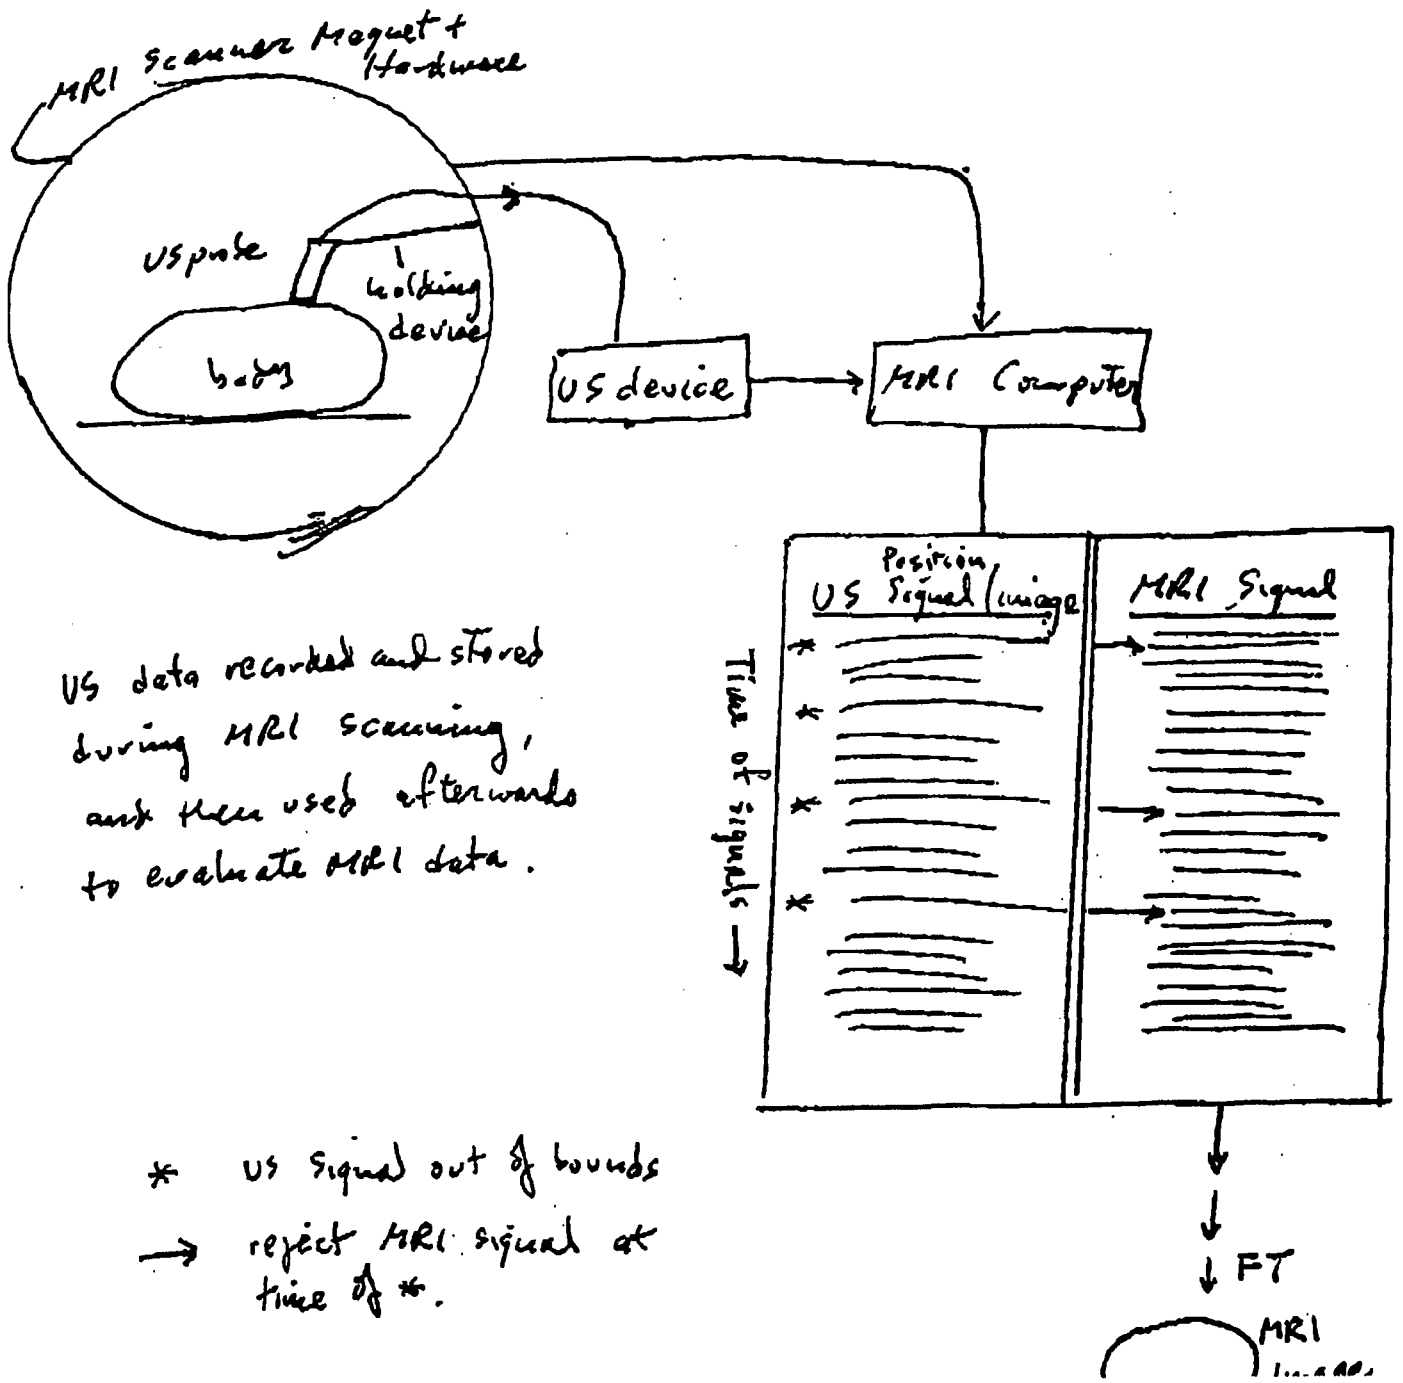 MRI Scanner Magnet +
Hardware
US probe
holding
device
body
US device
MRI Computer
Position
US Signal/image
MRI Signal
*
*
*
*
Time of signals →
US data recorded and stored
during MRI scanning,
and then used afterwards
to evaluate MRI data.
* US signal out of bounds
→ reject MRI signal at
time of *.
FT
MRI